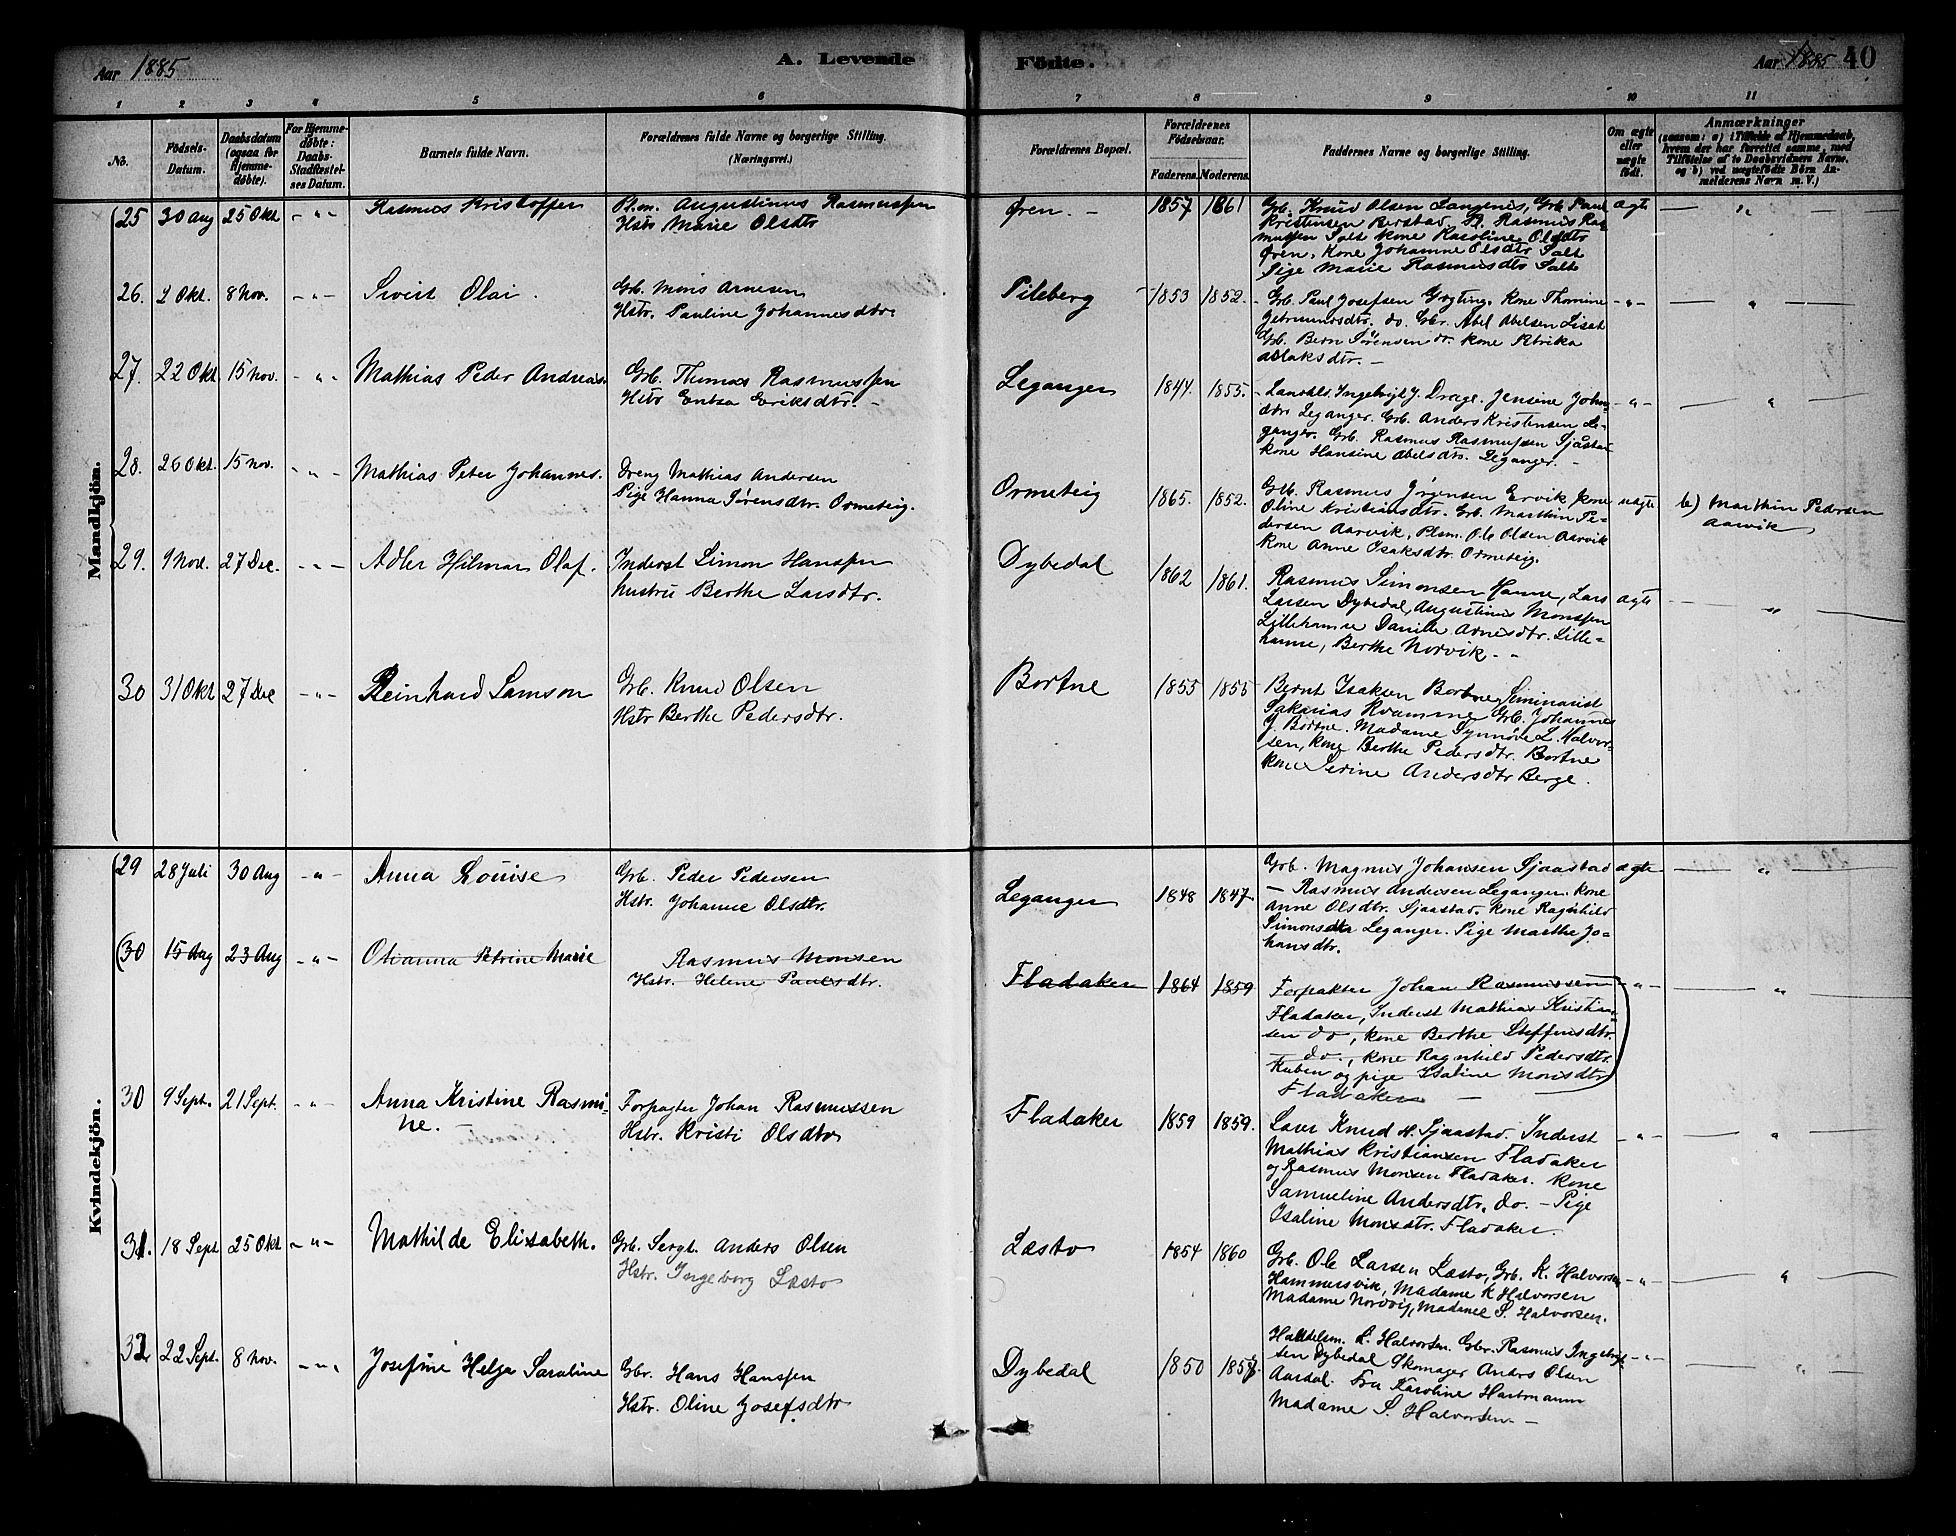 Aar 1885
A. Levende
Födte.
Aar 1885 40
1 2 3 4 5 6 7 8 9 10 11
No.
Födsels-Datum.
Daabsdatum (ogsaa for Hjemme-döbte).
For Hjemme-döbte: Daabs-Stadfæstel-ses Datum.
Barnets fulde Navn.
Forældrenes fulde Navne og borgerlige Stilling. (Næringsvei.)
Forældrenes Bopæl.
Forældrenes Födselsaar.
Faderens. Moderens.
Faddernes Navne og borgerlige Stilling.
Om ægte eller uægte födt.
Anmærkninger
(saasom: a) i Tilfælde af Hjemmedaab,
hvem der har forrettet samme, med
Tilföielse af to Daabsvidners Navne.
og b) ved uægtefödte Börn An-
melderens Navn m. V.)
Mandkjön.
25 30 Aug 25 Okt - " - Rasmus Kristoffer
Pl.m. Augustinus Rasmussen
Hstr Marie Olsdtr
Øren. - 1857 1861
Grb. Knud Olsen Langenes, Grb. Paul
Kristensen Berstad, Rasmus Ras-
mussen Salt Kone Karoline Olsdtr
Øren. Kone Johanne Olsdtr Salt
Pige Marie Rasmusdtr Salt
ægte — " —
26. 2 Okt. 8 Nov. - " - Sivert Olai.
Grb. Mons Arnesen
Hstr. Pauline Johannesdtr.
Pileberg 1853 1852.
Grb. Paul Josefsen Grotting. Kone Thomine
do. Gbr. Abel Abelsen Liset
Grb. Bern Sørensen do. Kone Petrika
Aslaksdtr. -
- " - — " —
27. 22 Okt 15 Nov. - " - Mathias Peder Andreas.
Grb. Thomas Rasmussen
Hstr Eriksdtr. -
Leganger 1844. 1855.
Ingebrigt J. Drage. Jensine Johns-
dtr Leganger. Grb. Anders Kristensen Le-
ganger. Grb. Rasmus Rasmussen Sjåstad
Kone Hansine Abelsdtr. Leganger. -
- " - — " —
28. 26 Okt. 15 Nov. - " - Mathias Peter Johannes.
Dreng Mathias Andersen
Pige Hanna Sørensdtr. Ormeteig.
Ormeteig 1865. 1852.
Grb. Rasmus Jørgensen Ervik Kone
Oline Kristiansdtr. Grb. Marthin Pe-
dersen Aarvik, Plsm. Ole Olsen Aarvik
Kone Anne Isaksdtr. Ormeteig.
uægte b) Marthin Pedersen
Aarvik
29. 9 Nov. 27 Dec. - " - Adler Hilmar Olaf.
Inderst Simon Hanssen
hustru Berthe Larsdtr.
Dybedal 1862 1861.
Rasmus Simonsen Hamne, Lars
Larsen Dybedal, Augustinus Monssen
Lillehamne Danille Arnesdtr. Lille-
hamne, Berthe Norvik. -
ægte — " —
30 31 Okt 27 Dec - " - Reinhard Samson
Grb. Knud Olsen
Hstr Berthe Pedersdtr.
Bortne 1855 1855
Bernt Isaksen Bortne, Seminarist
Sakarias Kvamme Grb. Johannes
J. Bortne. Madame Synnøve L. Halvor-
sen, Kone Berthe Pedersdtr. Bortne
Kone Serine Andersdtr Berge.
Kvindekjön.
29 28 Juli 30 Aug - " - Anna Louise
Grb. Peder Pedersen
Hstr. Johanne Olsdtr.
Leganger 1848 1847
Grb. Magnus Johansen Sjaastad
— Rasmus Andersen Leganger. Kone
Anne Olsdtr. Sjaastad. Kone Ragnhild
Simonsdtr Leganger. Pige Marthe Jo-
hansdtr.
ægte — " —
(30 15 Aug 23 Aug - " - Olianna Petrine Marie
Rasmus Monsen
Hstr. Helene Paulsdtr.
Fladaker 1864 1859
Forpakter Johan Rasmussen
Fladaker, Inderst Mathias Kristian-
sen do, Kone Berthe Steffensdtr.
do., Kone Ragnhild Pedersdtr.
Kuben og pige Isaline Monsdtr
Fladaker —
- " - — " —
30 9 Sept. 21 Sept. - " - Anna Kristine Rasmi-
ne. —
Forpagter Johan Rasmussen
Hstr. Kristi Olsdtr
Fladaker 1859 1859.
Knud M. Sjaastad. Inderst
Mathias Kristiansen Fladaker
og Rasmus Monsen Fladaker. Kone
Samueline Andersdtr. do. - Pige
Isaline Monsdtr. Fladaker.
- " - — " —
31. 18 Sept 25 Okt - " - Mathilde Elisabeth.
Grb. Sergt. Anders Olsen
Hstr. Ingeborg Læsto
Læsto 1854 1860
Grb. Ole Larsen Læsto, Grb. K. Halvorsen
Hammersvik, Madame K Halvorsen
Madame Nordvig, Madame S. Halvorsen.
- " - — " —
32 22 Sept. 8 Nov. - " - Josefine Helga Saraline
Gbr. Hans Hanssen
Hstr. Oline Josefsdtr
Dybedal 1850 1857.
Handelsm. L. Halvorsen. Gbr. Rasmus Ingebrigt-
sen Dybedal Skomager Anders Olsen
Aardal. Fru Karoline Hartmann
Madame S. Halvorsen. -
- " - — " —